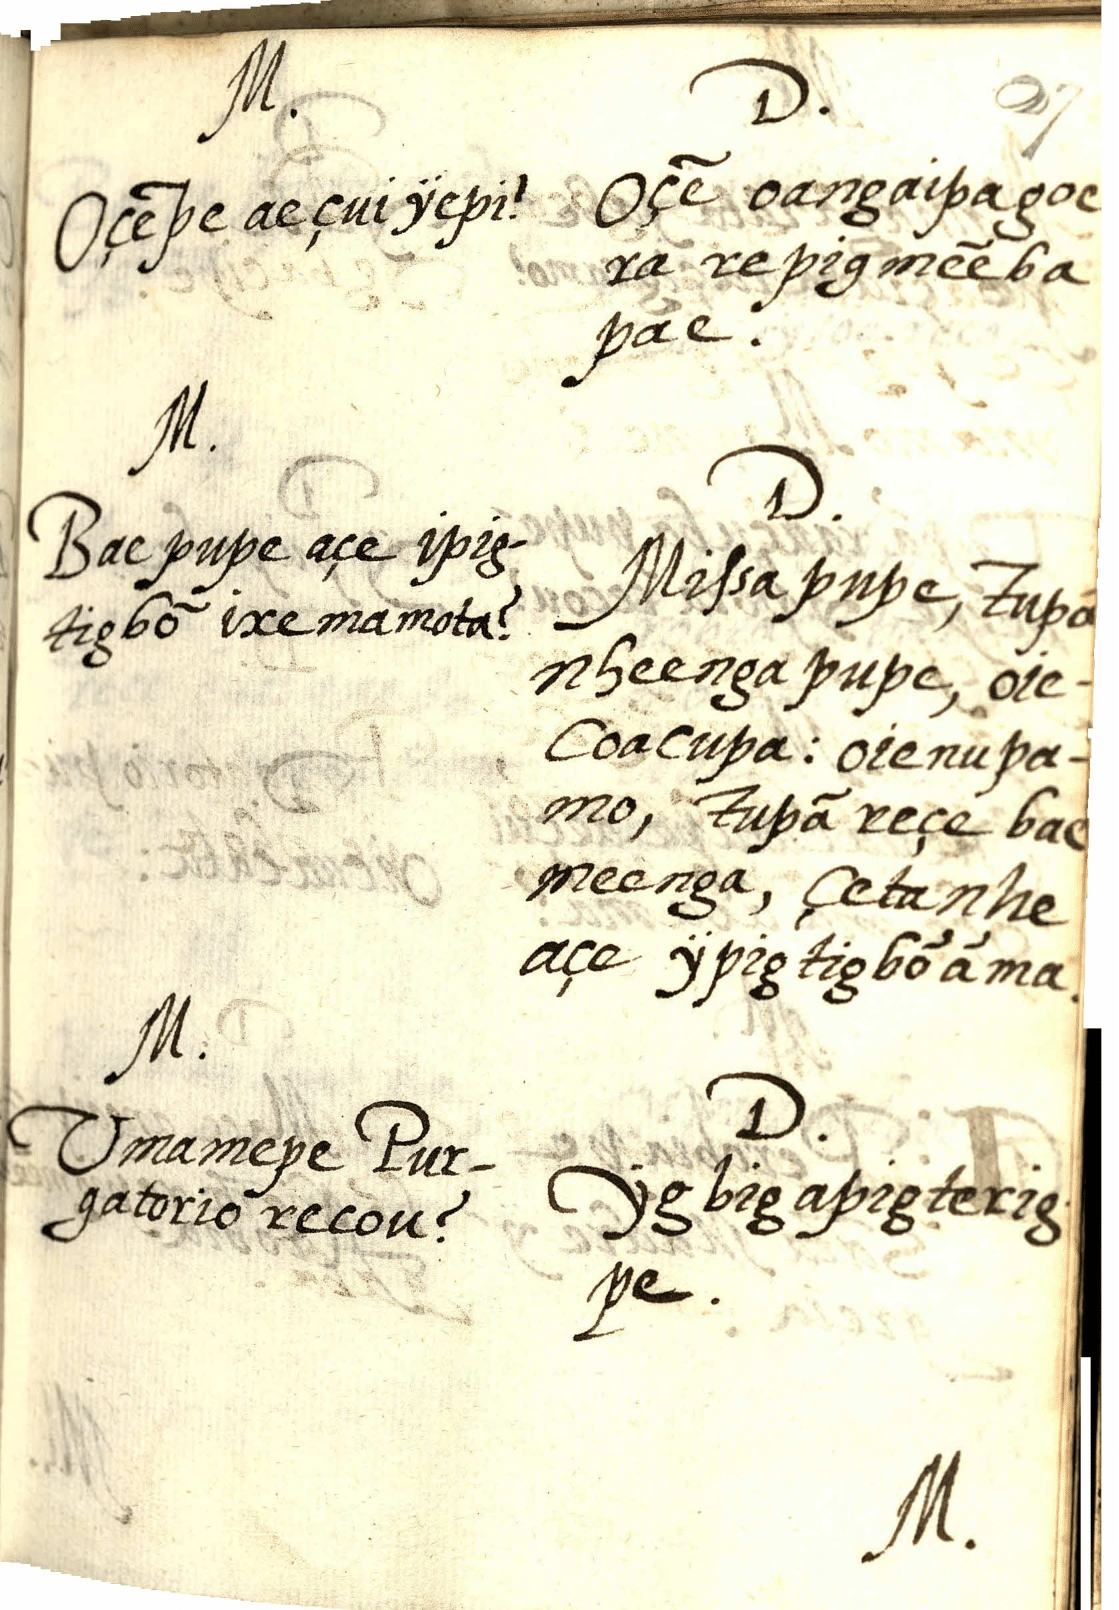 27
M.
Oçẽpe ae çui ÿepi?
D.
Oçẽ oangaipagoe
ra repigmẽẽba
pae.
M.
Bae pupe açe ipig-
tigbõ ixe mamota?
D.
Missa pupe, Tupã
nheenga pupe, oie-
coacupa: oienupa-
mo, Tupã reçe bae
meenga, çeta nhe
açe ÿpigtigbõ ãma.
M.
Umamepe Pur-
gatorio recou?
D.
ÿgbigapigterig
pe.
M.